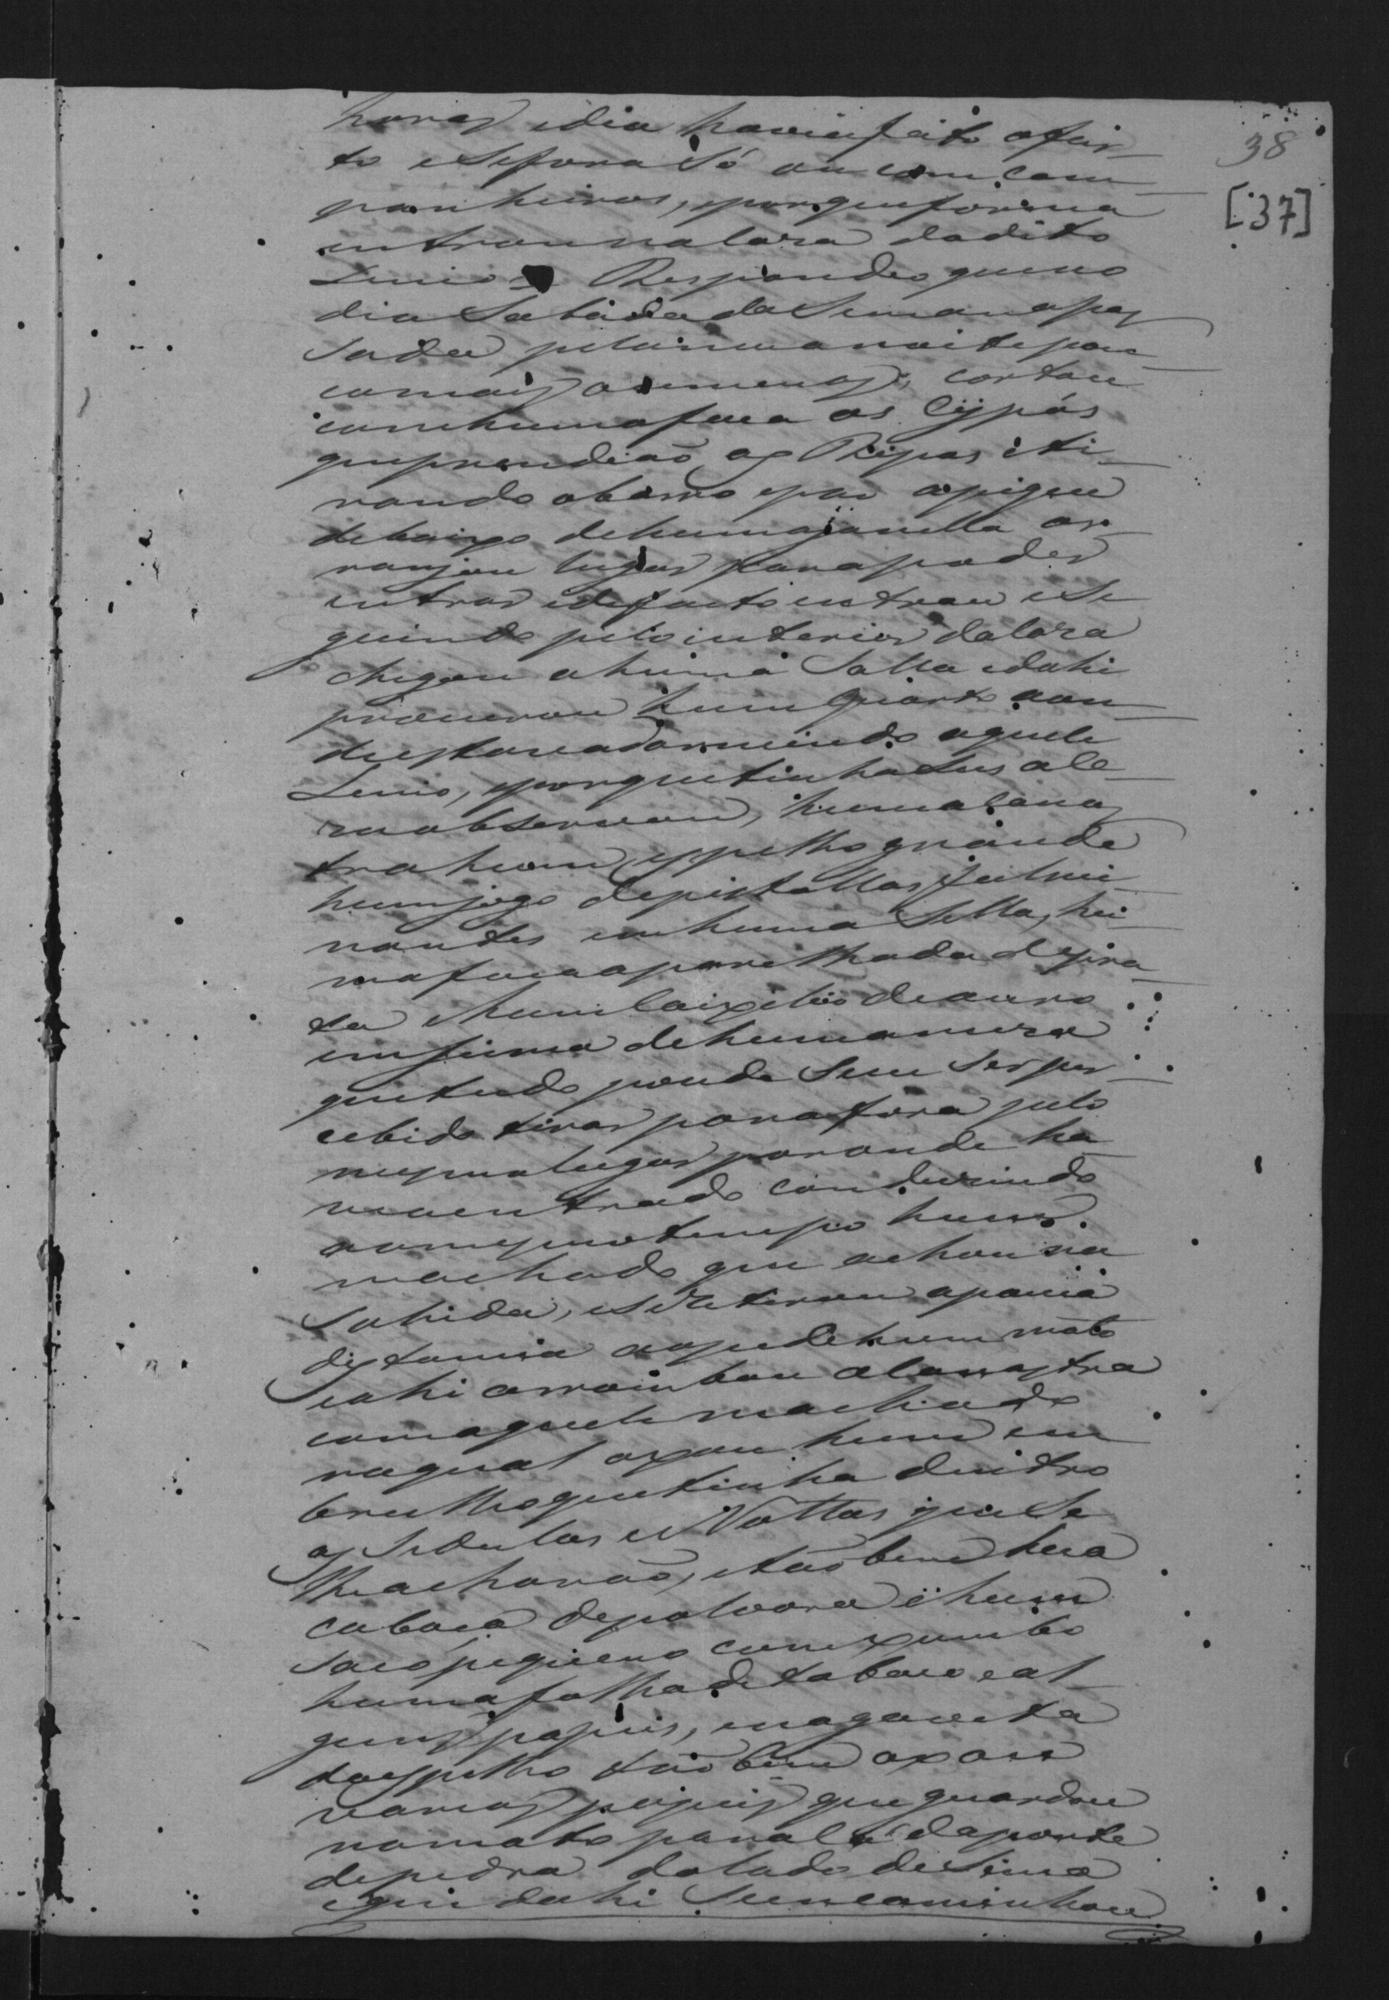 38
[37]
horas e dia havia feito o fur-
to e se fora só ou com com-
panheiros, e porque forma
entrou na Caza do dito
Respondeo que no
dia Sabado da Semana pas
sada pela meia noite pou-
co mais ou menos, cortou
com huma faca os Cypós
que prendião as Ripas e ti-
rando o barro e pao a pique
debaixo de huma janella ar-
ranjou lugar para poder
entrar e de facto entrou e se
guindo pelo interior da Caza
chegou a huma Salla e dahi
procurou hum quarto aon-
de estava dormindo aquele
e porque tinha Lus ace-
za observou, huma Canas
tra hum espelho grande
hum jogo de pistollas fulmi-
nantes em huma Sella, hu
ma faca aparelhada de pra-
ta e hum Caixilio de ouro
em sima de huma meza
que tudo poude sem ser per-
cebido tirar para fora pelo
mesmo lugar por onde ha-
via entrado conduzindo
ao mesmo tempo hum
machado que achou na
Sahida, e se retirou a pouca
distancia ao pe de hum mato
e ahi arrombou a Canastra
com aquele machado
na qual axou hum em
brulho que tinha dentro
as Sedulas e Nottas que Se
lhe acharão, e tão bem hua
cabaça de polvora e hum
saco pequeno com xumbo
huma folha de tabaco e al-
guns papeis, e na gaveta
do espelho tão bem axou
varios papeis que guardou
no mato para lá da ponte
de pedra do lado de Sima
e que dahi Se encaminhou